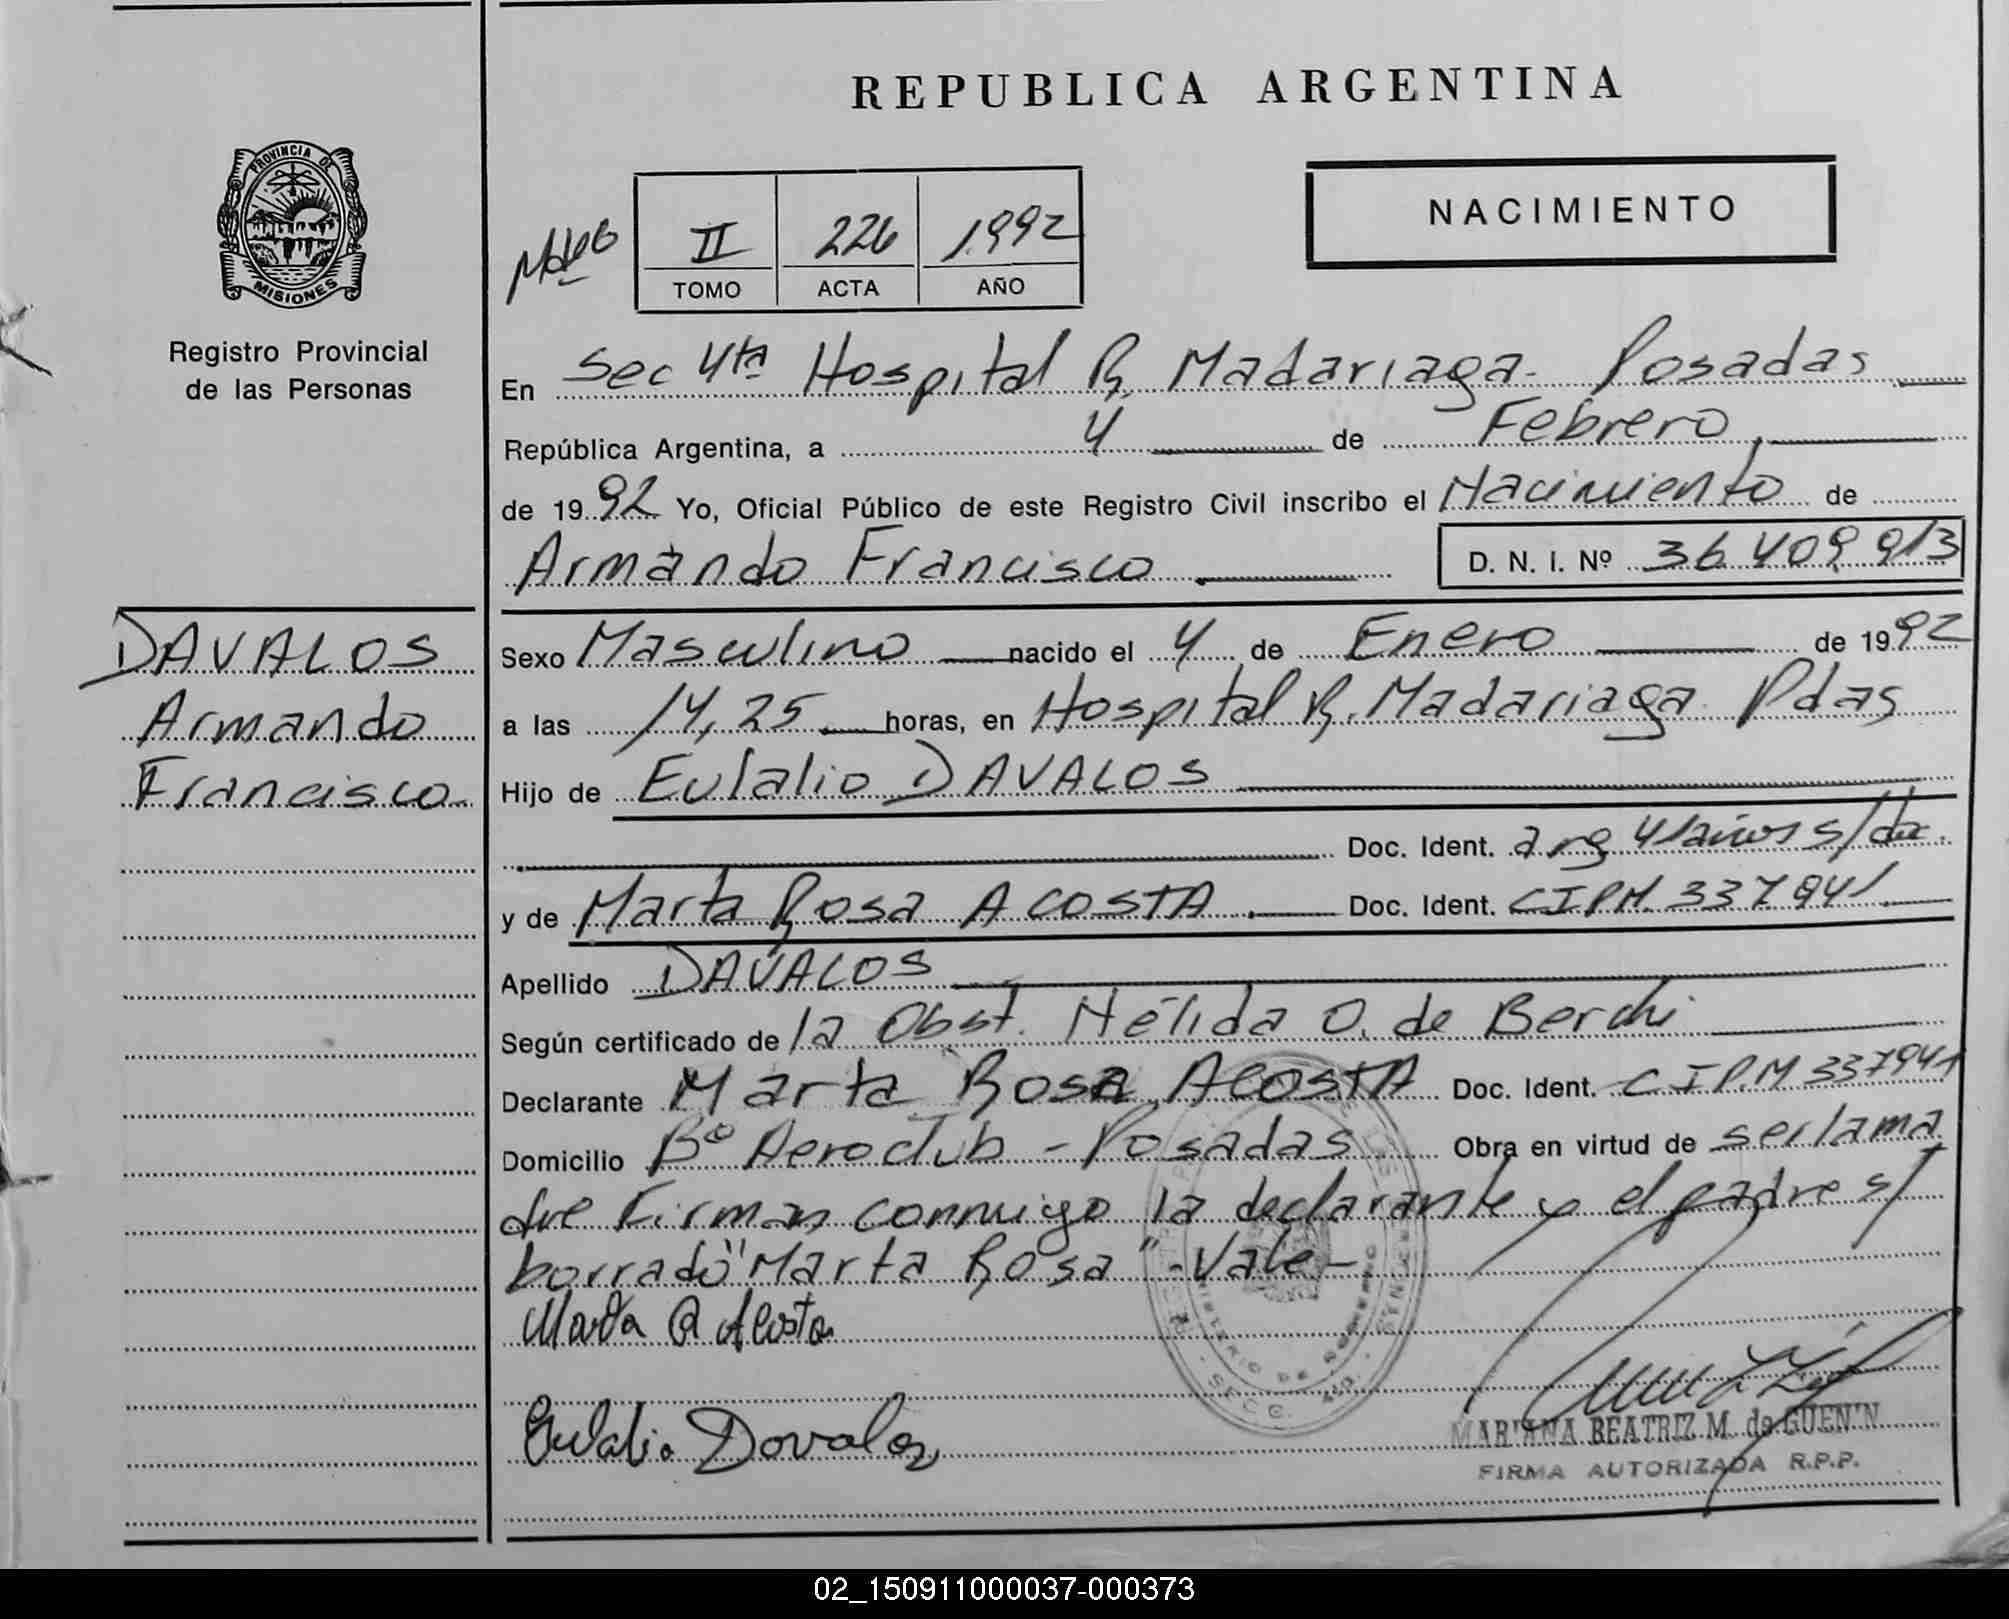 REPUBLICA ARGENTINA
PROVINCIA DE
MISIONES
Registro Provincial
de las Personas
II 226 1992
TOMO ACTA AÑO
NACIMIENTO
En Sec 4ta Hospital R. Madariaga - Posadas
República Argentina, a 4 de Febrero
de 1992 Yo, Oficial Público de este Registro Civil inscribo el Nacimiento de
Armando Francisco D. N. I. Nº 36.409.913
DAVALOS
Armando
Francisco
Sexo Masculino nacido el 4 de Enero de 1992
a las 14,25 horas, en Hospital R. Madariaga Pdas
Hijo de Eulalio DAVALOS
Doc. Ident. arg 41 años s/doc.
y de Marta Rosa ACOSTA Doc. Ident. CIPM. 337941
Apellido DAVALOS
Según certificado de la Obst. Nélida O. de Berchi
Declarante Marta Rosa ACOSTA Doc. Ident. C I P.M 337941
Domicilio Bº Aeroclub - Posadas Obra en virtud de ser la ma
dre Firman conmigo la declarante y el padre s/
borrado "Marta Rosa" - Vale -
Marta R Acosta
Eulalio Dovalos
MINISTERIO DE GOBIERNO
SECC.
MARIANA BEATRIZ M. de GUENIN
FIRMA AUTORIZADA R.P.P.
02_150911000037-000373